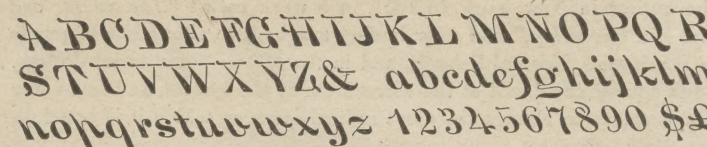 A B C D E F G H I J K L M N O P Q R
S T U V W X Y Z & a b c d e f g h i j k l m
n o p q r s t u v w x y z 1 2 3 4 5 6 7 8 9 0 $ £